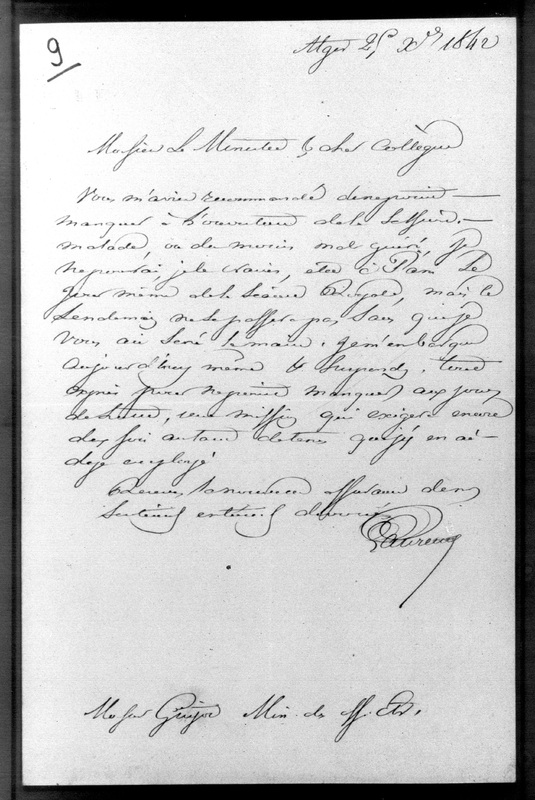 9
Alger 25 Xbre 1842
Monsieur Le Ministre & cher Collègue
Vous m'aviez recommandé de ne point
manquer à l'ouverture de la
malade, ou du moins mal guéri, je
ne pourai, je le crains, etre à Paris le
jour même de la Séance Royale, mais le
lendemain ne se passera pas sans que je
vous ai serré la main. Je m'embarque
aujourd'huy même & suspends, tout
exprès pour ne point manquer aux jours
de lutte, une mission qui exigera encore
dix fois autant de tems que j'y en ai
deja employé
Recevez la nouvelle assurance de mes
Sentimens
Laurence
Monsieur Guizot Min. des aff. Etr.